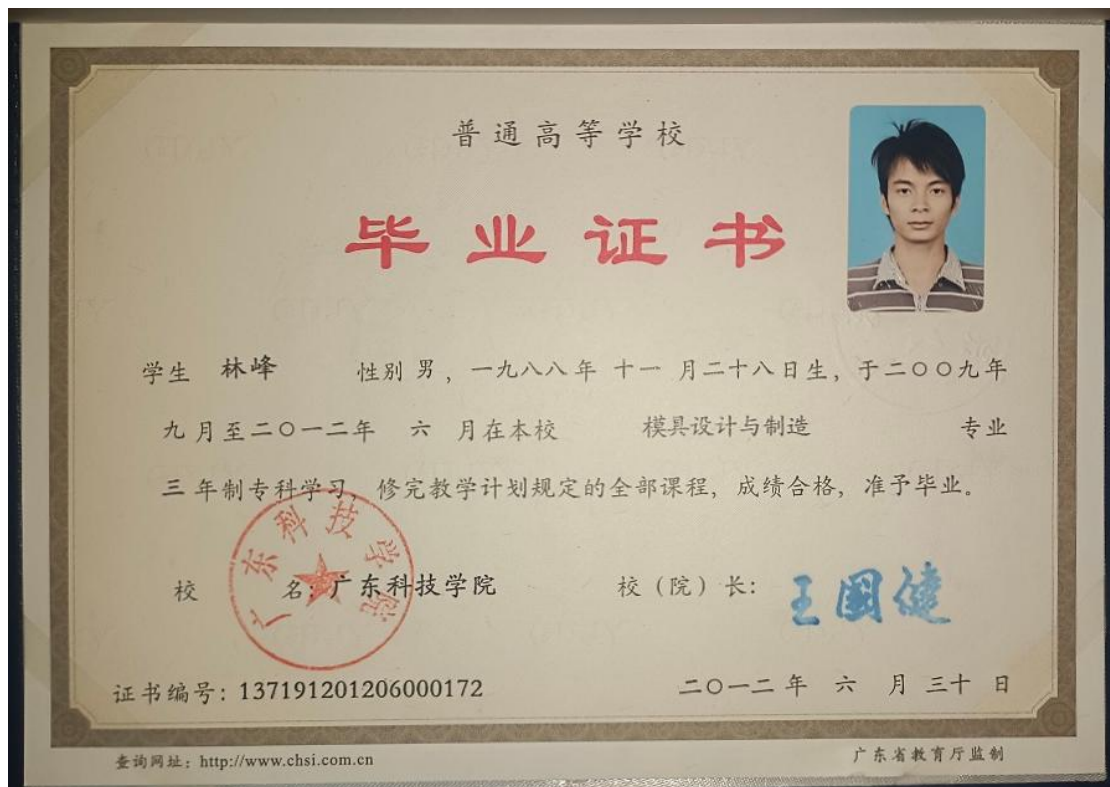 普通高等学校
毕业证书
学生 林峰 性别 男，一九八八年 十一 月二十八日生，于二〇〇九年
九 月至二〇一二年 六 月在本校 模具设计与制造 专业
三 年制专科学习，修完教学计划规定的全部课程，成绩合格，准予毕业。
广东科技学院
校 名：广东科技学院 校（院）长：王國健
证书编号：137191201206000172 二〇一二 年 六 月 三十 日
查询网址：http://www.chsi.com.cn 广东省教育厅监制